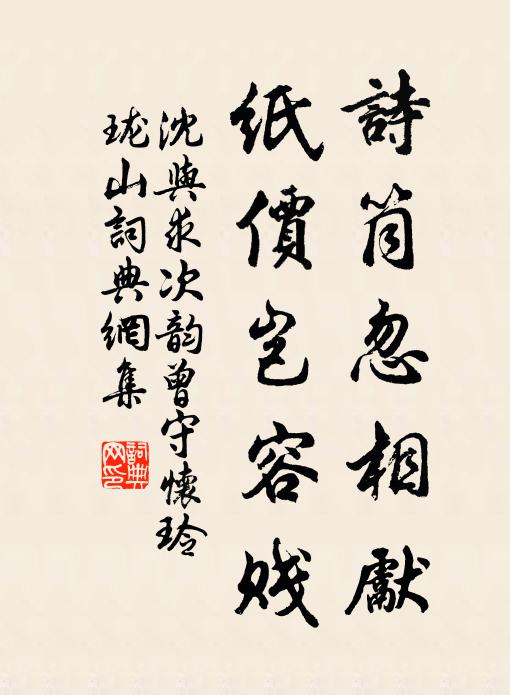 詩筒忽相獻
紙價豈容賤
沈與求次韵曾守懷玲
瓏山詞典網集
詞典網印